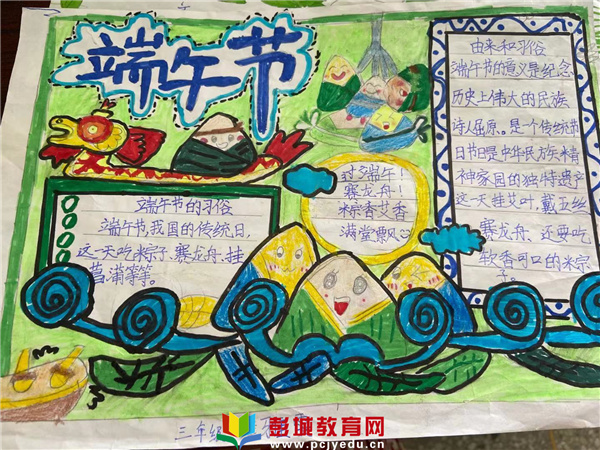 端午节
由来和习俗
端午节的意义是纪念
历史上伟大的民族
诗人屈原。是个传统节
日节日是中华民方矢米青
神家园的独特遗产
这一天挂艾叶、戴五丝
赛龙舟、还要吃
软香可口的米宗
子。
过端午!
赛龙舟!
粽香艾香
满堂飘风
端午节的习俗
端午节我国的传统日,
这一天吃粽子、赛龙舟、挂
菖蒲等等。
三年级
彭城教育网
www.pcjyedu.cn